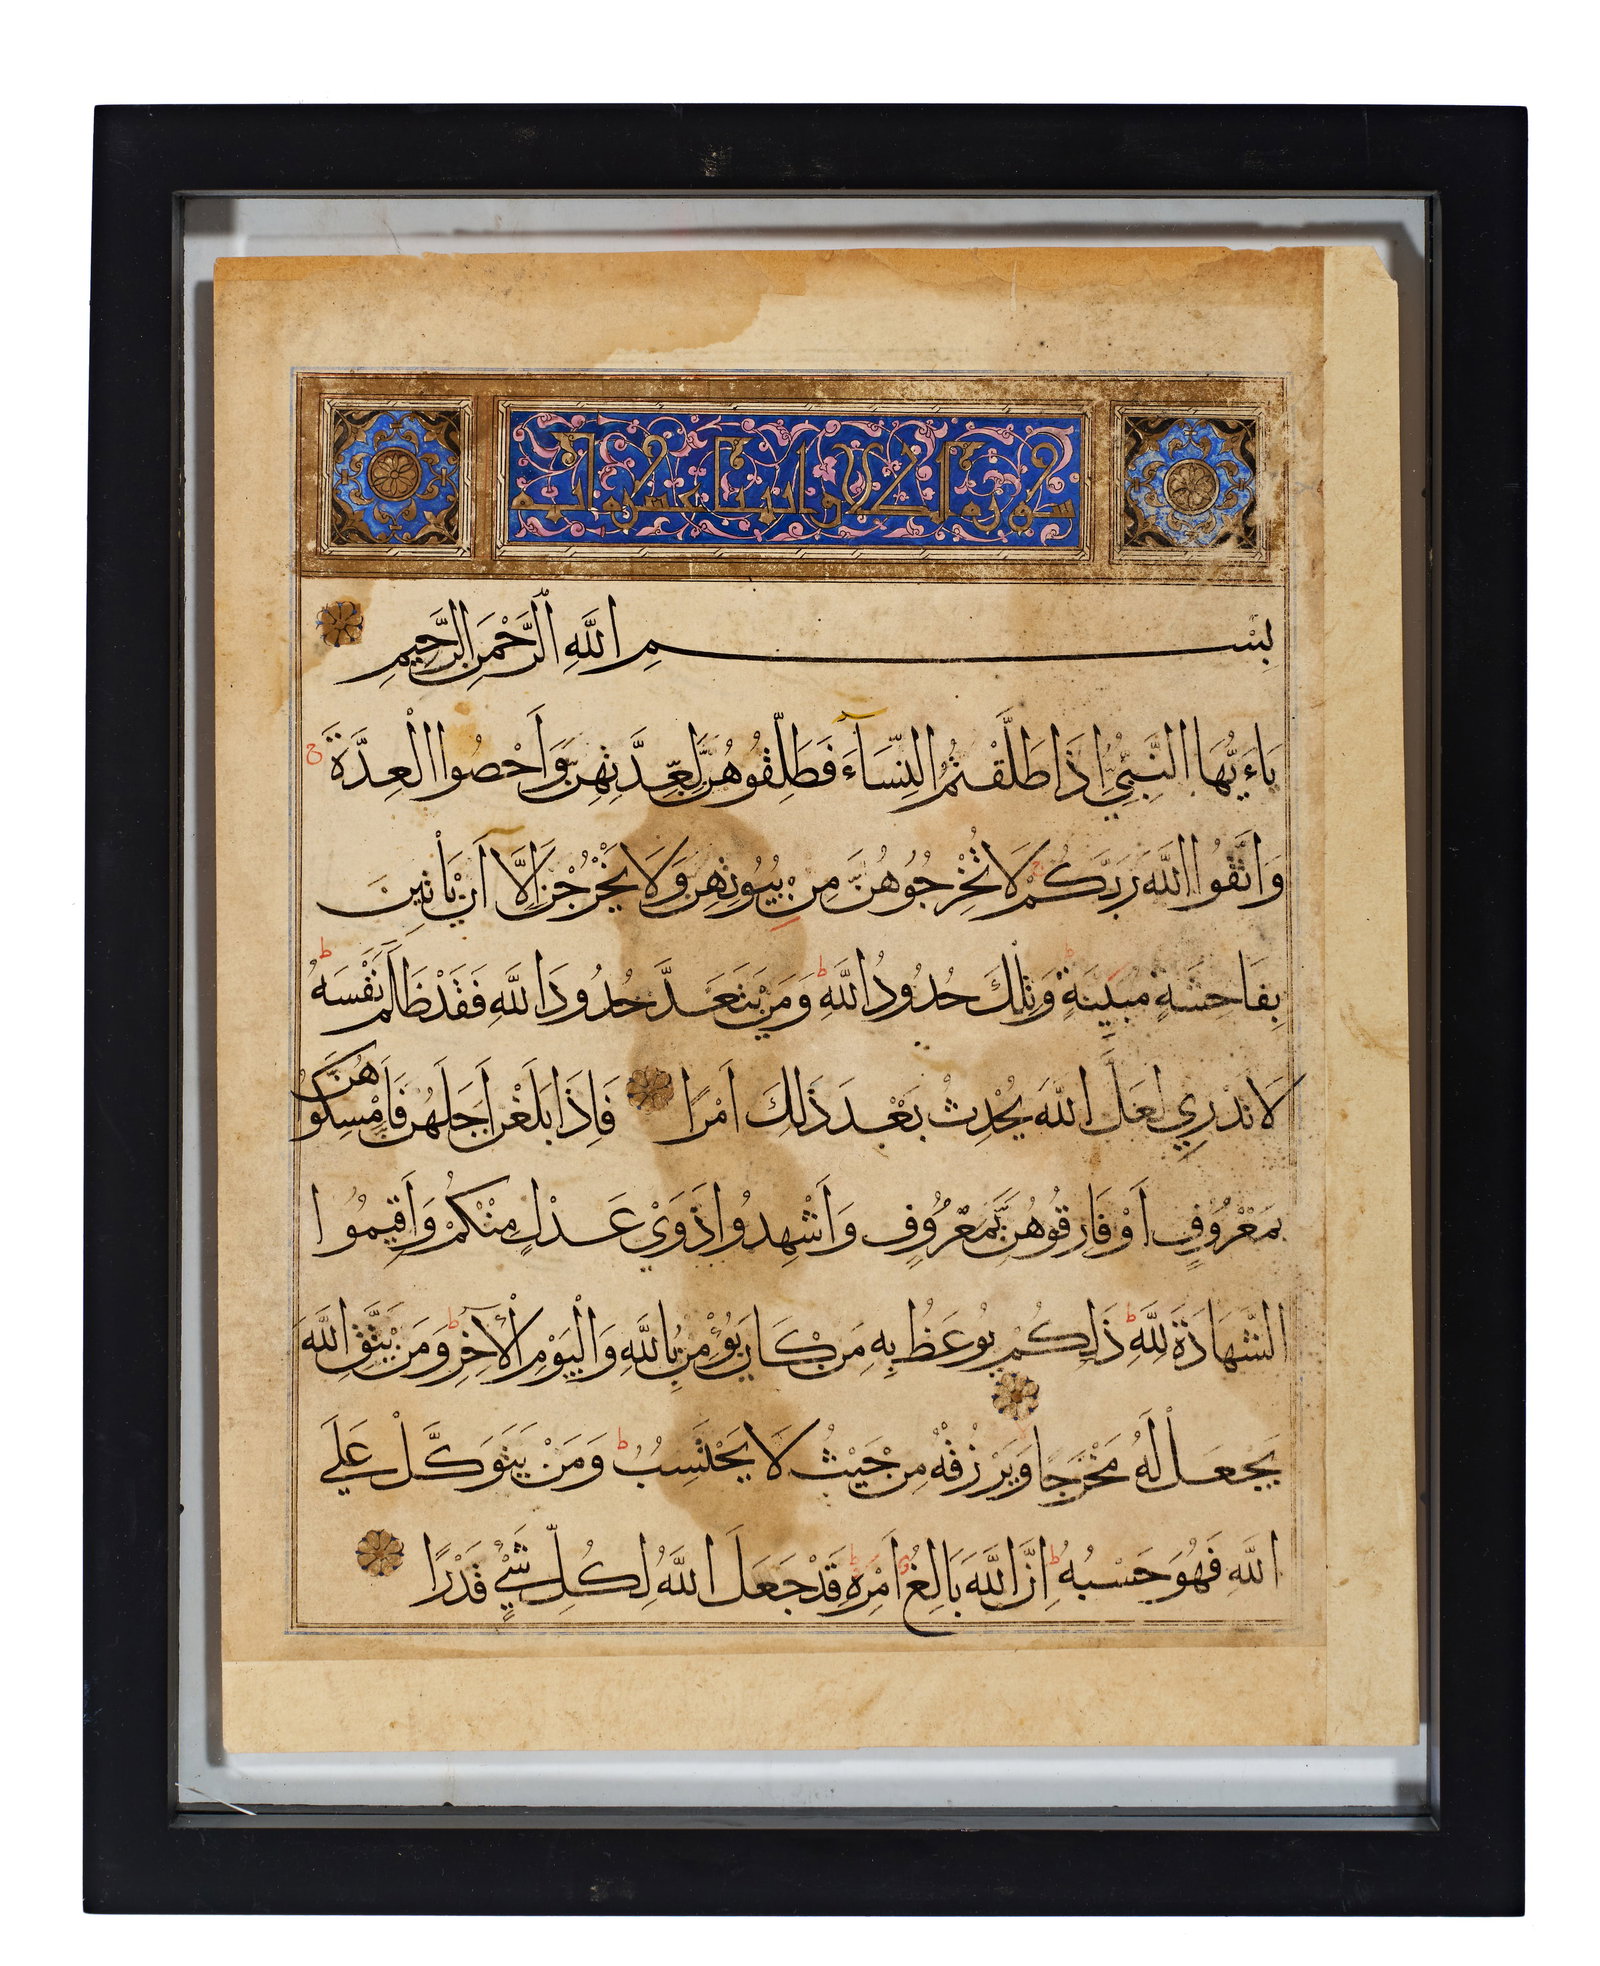 سورة الطلاق اثنتا عشرة اية
بِسْمِ اللَّهِ الرَّحْمَنِ الرَّحِيمِ
يَاءَيُّهَا النَّبِيُّ إِذَا طَلَّقْتُمُ النِّسَآءَ فَطَلِّقُوهُنَّ لِعِدَّتِهِنَّ وَأَحْصُوا الْعِدَّةَ ج
وَاتَّقُوا اللَّهَ رَبَّكُمْ لَا تُخْرِجُوهُنَّ مِنْ بُيُوتِهِنَّ وَلَا يَخْرُجْنَ إِلَّا أَنْ يَأْتِينَ
بِفَاحِشَةٍ مُبَيِّنَةٍ ط وَتِلْكَ حُدُودُ اللَّهِ ط وَمَنْ يَتَعَدَّ حُدُودَ اللَّهِ فَقَدْ ظَلَمَ نَفْسَهُ ط
لَا تَدْرِي لَعَلَّ اللَّهَ يُحْدِثُ بَعْدَ ذَلِكَ أَمْرًا فَإِذَا بَلَغْنَ أَجَلَهُنَّ فَأَمْسِكُوهُنَّ
بِمَعْرُوفٍ أَوْ فَارِقُوهُنَّ بِمَعْرُوفٍ وَأَشْهِدُوا ذَوَيْ عَدْلٍ مِنْكُمْ وَأَقِيمُوا
الشَّهَادَةَ لِلَّهِ ط ذَلِكُمْ يُوعَظُ بِهِ مَنْ كَانَ يُؤْمِنُ بِاللَّهِ وَالْيَوْمِ الْآخِرِ ط وَمَنْ يَتَّقِ اللَّهَ
يَجْعَلْ لَهُ مَخْرَجًا وَيَرْزُقْهُ مِنْ حَيْثُ لَا يَحْتَسِبُ ط وَمَنْ يَتَوَكَّلْ عَلَى
اللَّهِ فَهُوَ حَسْبُهُ ط إِنَّ اللَّهَ بَالِغُ أَمْرِهِ ط قَدْ جَعَلَ اللَّهُ لِكُلِّ شَيْءٍ قَدْرًا